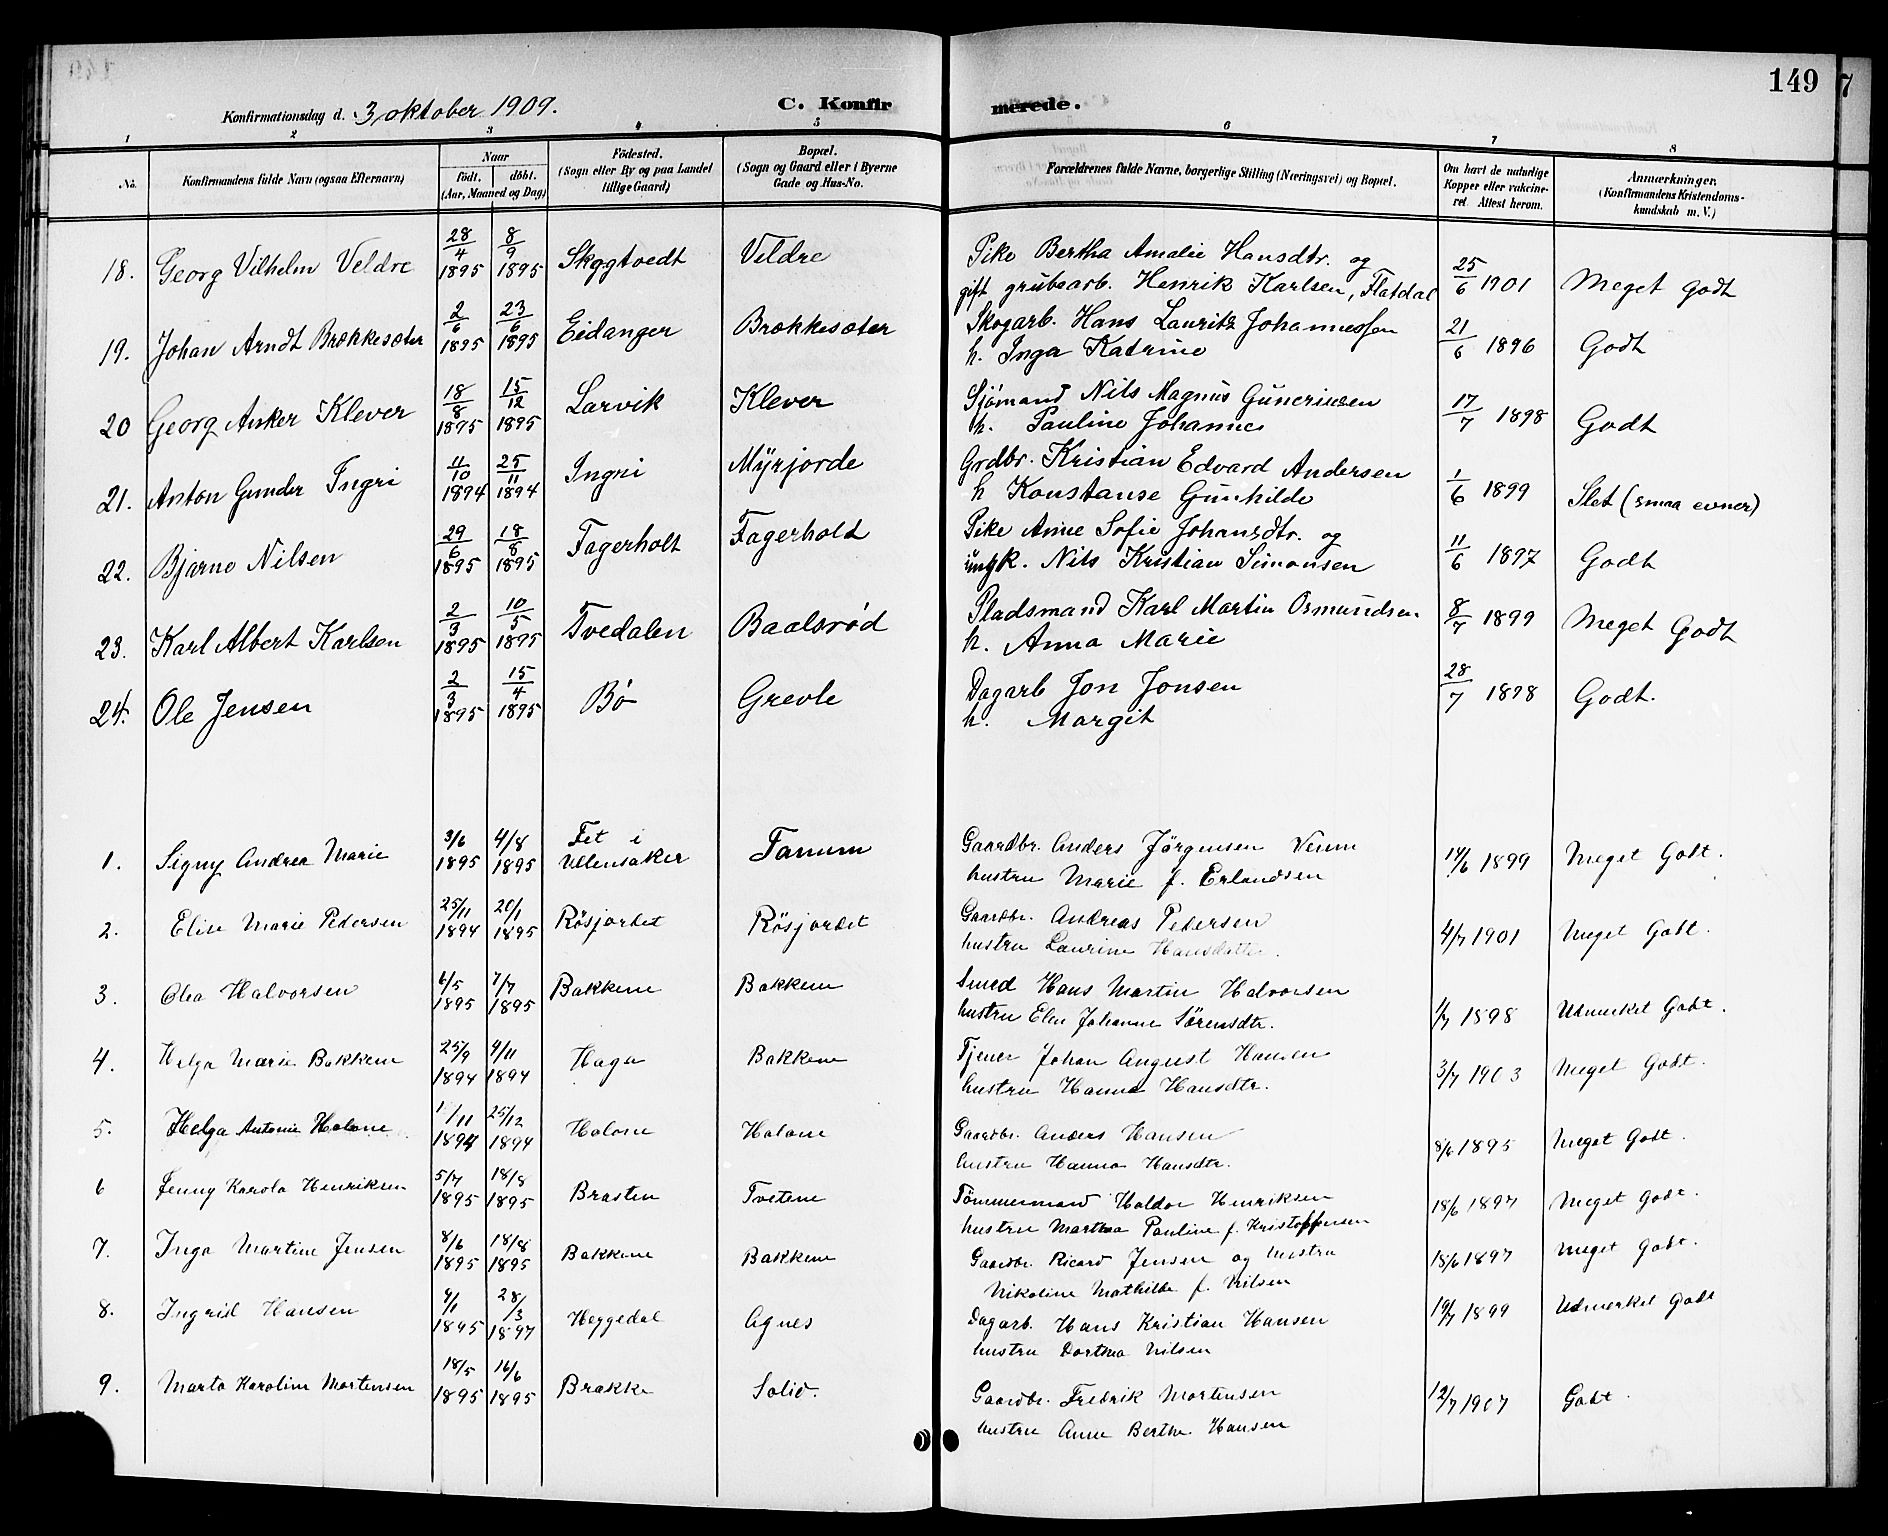 149
Konfirmationsdag d. 3 oktober 1909.
C. Konfirmerede.
1 2 3 4 5 6 7 8
No. Konfirmandens fulde Navn (ogsaa Efternavn) Naar födt. döbt. (Aar, Maaned og Dag) Födested. (Sogn eller By og paa Landet tillige Gaard) Bopæl. (Sogn og Gaard eller i Byerne Gade og Hus-No. Forældrenes fulde Navne, borgerlige Stilling (Næringsvei) og Bopæl. Om havt de naturlige Kopper eller vakcineret. Attest herom. Anmærkninger. (Konfirmandens Kristendomskundskab m. V.)
18. Georg Vilhelm Veldre 28/4 1895 8/9 1895 Skggtvedt Veldre Pike Bertha Amalie Hansdtr. og 25/6 1901 Meget godt
gift grubearb. Henrik Karlsen, Flatdal
19. Johan Arndt Brækkesæter 2/6 1895 23/6 1895 Eidanger Brækkesæter Skogarb. Hans Lauritz Johannessen 21/6 1896 Godt
h. Inga Katrine
20 Georg Anker Klever 18/8 1895 15/12 1895 Larvik Klever Sjømand Nils Magnus Guneriusen 17/7 1898 Godt
h. Pauline Johanne
21. Anton Gunder Ingri 11/10 1894 25/11 1894 Ingri Myrjorde Grdbr. Kristian Edvard Andersen 1/6 1899 Slet (smaa evner)
h Konstanse Gunhilde
22. Bjarne Nilsen 29/6 1895 18/8 1895 Fagerholt Fagerhold Pike Anne Sofie Johansdtr. og 11/6 1897 Godt
ungk. Nils Kristian Simonsen
23. Karl Albert Karlsen 2/3 1895 10/5 1895 Tvedalen Baalsrød Pladsmand Karl Martin Osmundsen 8/7 1899 Meget Godt
h. Anna Marie
24. Ole Jensen 2/3 1895 15/4 1895 Bö Grevle Dagarb Jon Jonsen 28/7 1898 Godt.
h. Margit
1. Signy Andrea Marie 3/6 1895 4/8 1895 Fet i Ullensaker Tanum Gaardbr. Anders Jørgensen 14/6 1899 Meget Godt.
hustru Marie f. Erlandsen
2. Elise Marie Pedersen 25/11 1894 20/1 1895 Røsjordet Røsjordet Gaardbr. Andreas Pedersen 4/7 1901 Meget Godt.
hustru Laurine Hansdatter.
3. Olea Halvorsen 6/5 1895 7/7 1895 Bakkene Bakken Smed Hans Martin Halvorsen 1/7 1898 Udmerket Godt.
hustru Elen Johanne Sörensdtr.
4. Helga Marie Bakkene 25/9 1894 4/11 1894 Haga Bakkene Tjener Johan August Hansen 3/7 1903 Meget Godt.
hustru Hanna Hansdtr.
5. Helga Antonie Holone 1/11 1894 25/12 1894 Holone Holone Gaardbr. Anders Hansen 8/6 1895 Meget Godt.
hustru Hanna Hansdtr.
6 Jenny Karola Henriksen 5/7 1895 18/8 1895 Brasten Tvetene Tömmermand Haldor Henriksen 18/6 1897 Meget Godt.
hustru Marthea Pauline f. Kristoffersen
7. Inga Martine Jensen 8/6 1895 18/8 1895 Bakkene Bakkene Gaardbr. Ricard Jensen og hustru 15/6 1897 Meget Godt.
Nikoline Mathilde f. Nilsen
8. Ingrid Hansen 9/1 1895 28/3 1897 Heggedal Agnes Dagarb. Hans Kristian Hansen 19/7 1899 Udmerket Godt
hustru Dorthea Nilsen
9. Marta Karoline Mortensen 18/5 1895 16/6 1895 Brække Solid. Gaardbr. Fredrik Mortensen 12/7 1907 Godt.
hustru Anne Berthe Hansen